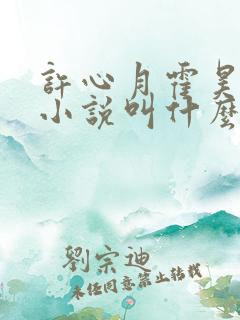 許心月霍昊
小說叫什麼
劉宗迪
未經同意禁止轉載